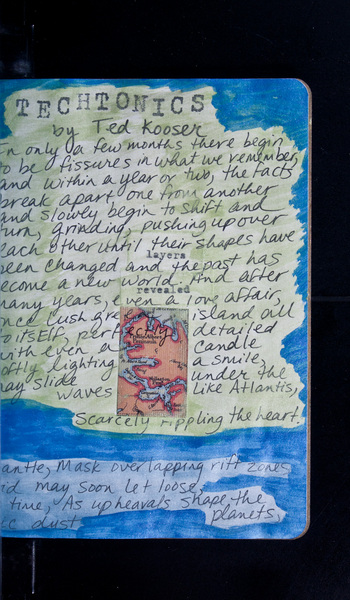 TECHTONICS
by Ted Kooser
in only a few months there begin
to be fissures in what we remember,
and within a year or two, the facts
break apart one from another
and slowly begin to shift and
turn, grinding, pushing up over
each other until their shapes have
layers
been changed and the past has
become a new world. And after
revealed
many years, even a love affair,
once lush island all
to itself, perfectly detailed
with even a candle
softly lighting a smile,
may slide under the
waves like Atlantis,
scarcely rippling the heart.
Mask overlapping rift zones
may soon let loose,
time, As upheavals shape the
planets,
dust